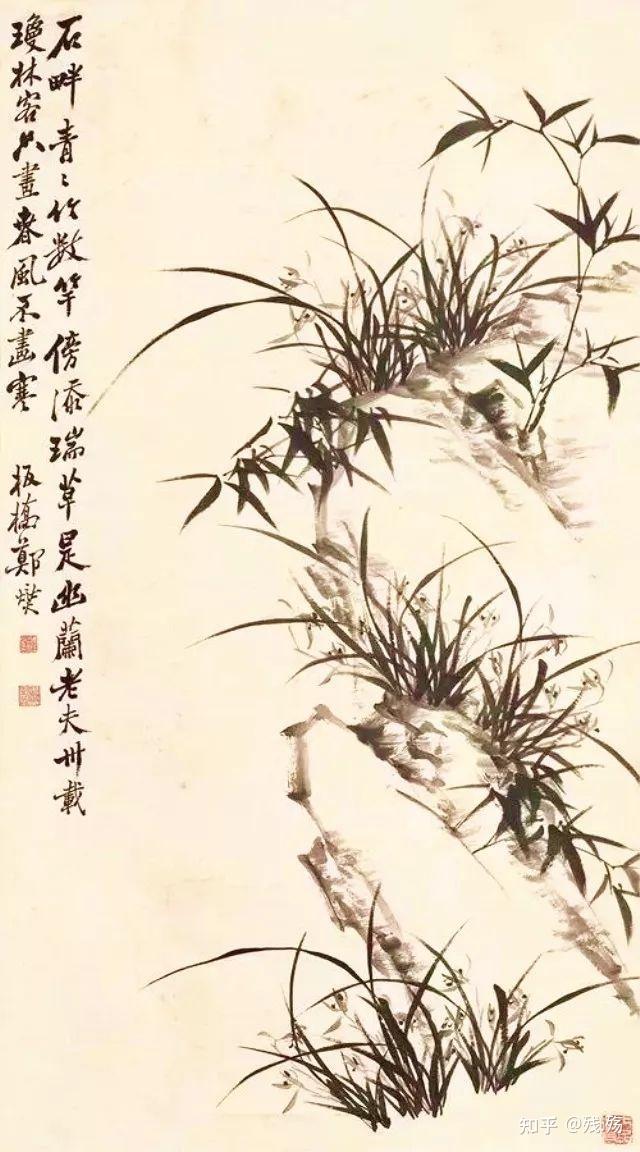 石畔青〻竹数竿傍添瑞草是幽蘭老夫卅載
瓊林客只畫春風不畫寒
板橋鄭燮
知乎 @残殇